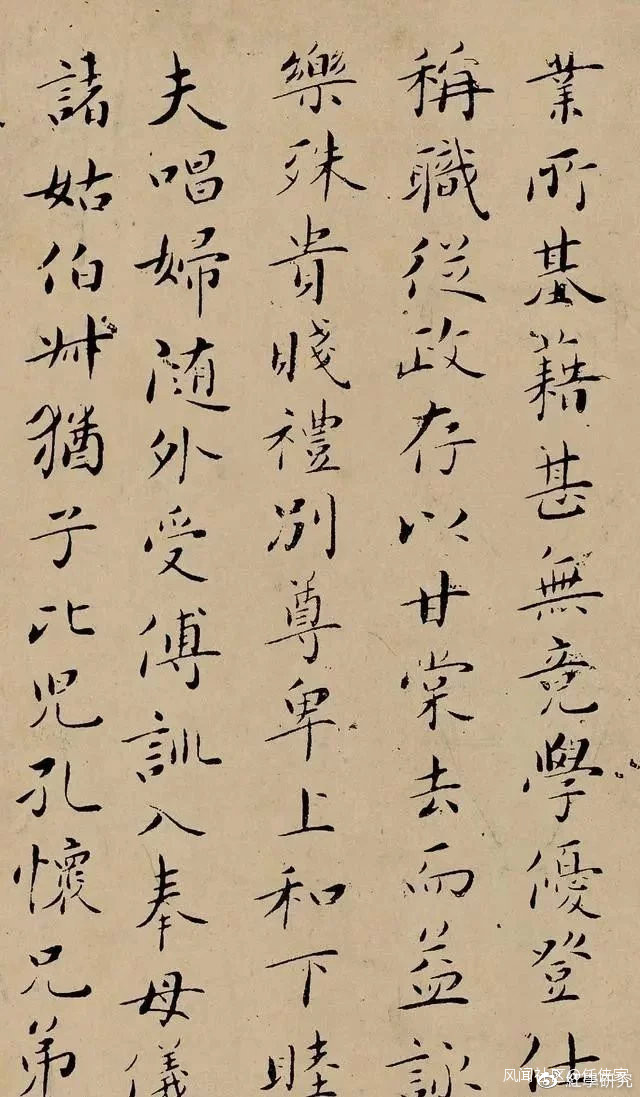 業所基藉甚無竟學優登仕
稱職從政存以甘棠去而益詠
樂殊貴賤禮別尊卑上和下睦
夫唱婦随外受傅訓入奉母儀
諸姑伯叔猶子比兒孔懷兄弟
风闻社区
紅學研究